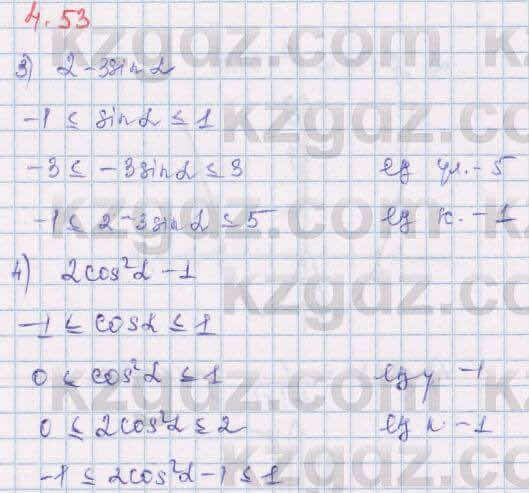 4.53
3) 2-3sinα
-1 ≤ sinα ≤ 1
-3 ≤ -3sinα ≤ 3 ең үл. - 5
-1 ≤ 2-3sinα ≤ 5 ең к. -1
4) 2cos²α -1
-1 ≤ cosα ≤ 1
0 ≤ cos²α ≤ 1 ең ү -1
0 ≤ 2cos²α ≤ 2 ең к. -1
-1 ≤ 2cos²α -1 ≤ 1
kzgdz.com